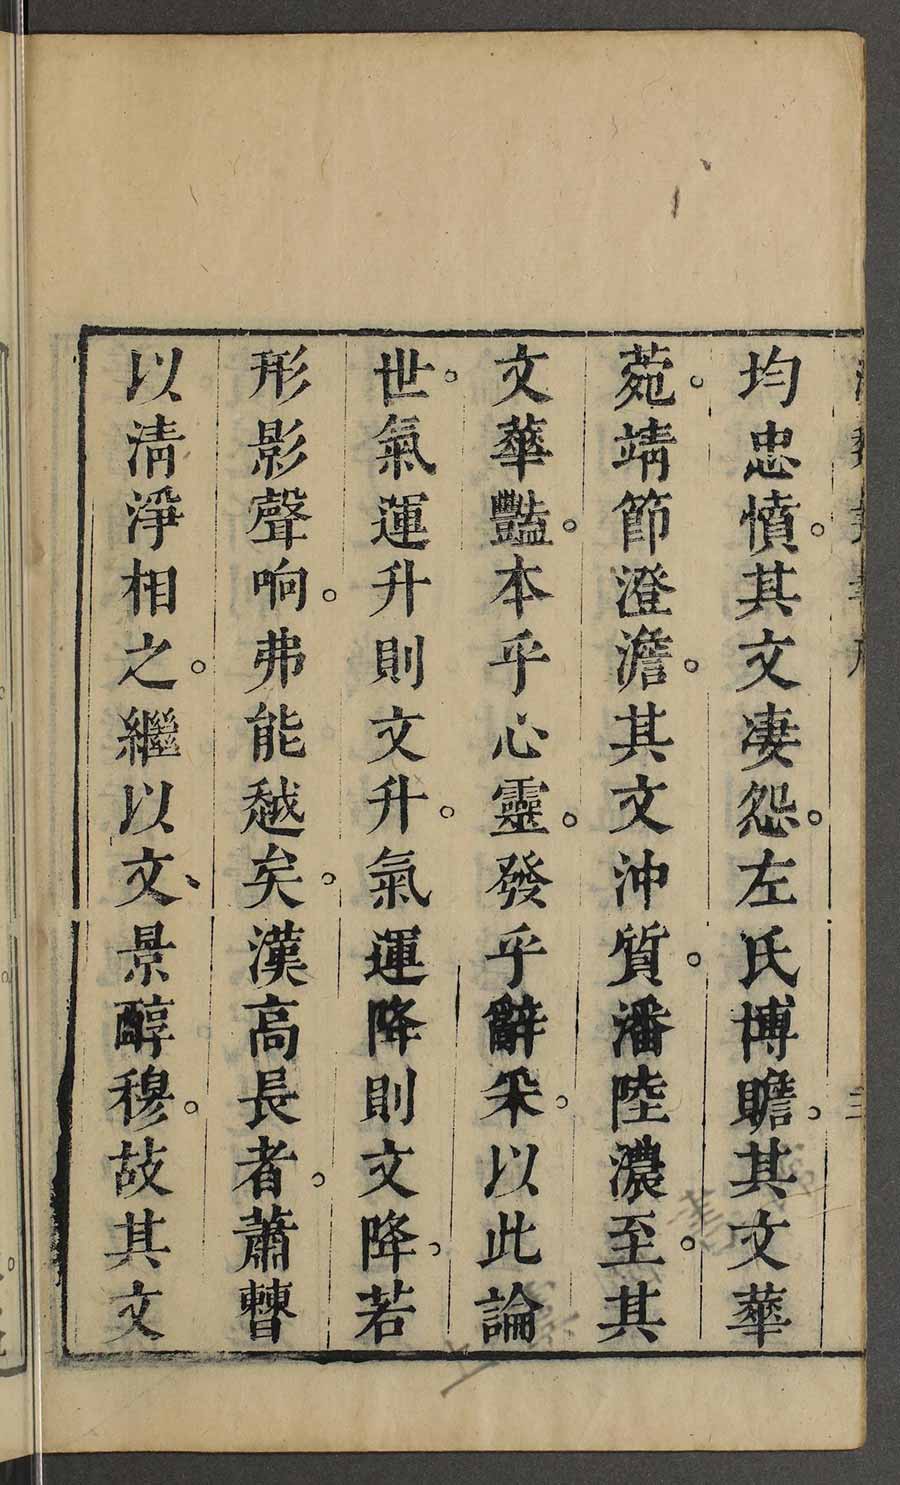 均忠憤。其文凄怨。左氏博贍。其文華
菀。靖節澄澹。其文沖質。潘陸濃至。其
文華豔。本乎心靈。發乎辭采。以此論
世。氣運升則文升。氣運降則文降。若
形影聲响。弗能越矣。漢高長者。蕭曹
以清淨相之。繼以文、景醇穆。故其文